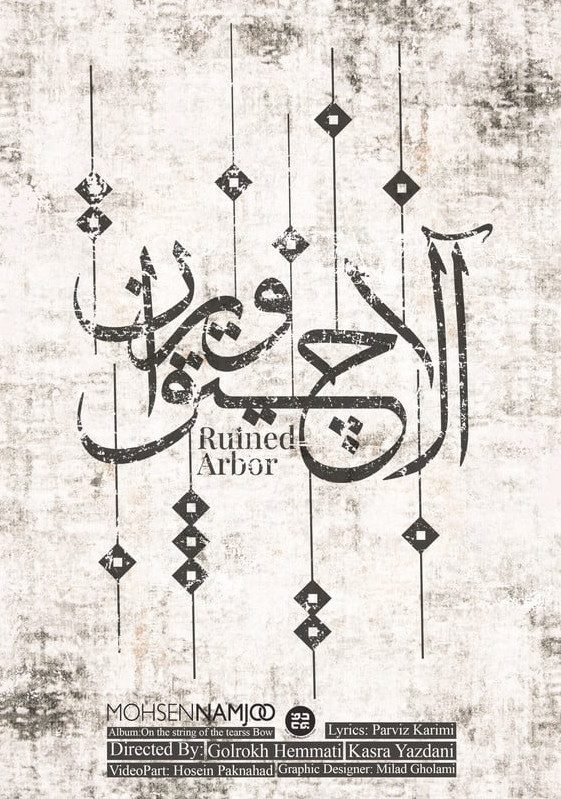 آلاچیق ویران
Ruined
Arbor
MOHSENNAMJOO
Album:On the string of the tearss Bow
Lyrics: Parviz Karimi
Directed By: Golrokh Hemmati Kasra Yazdani
VideoPart: Hosein Paknahad Graphic Designer: Milad Gholami